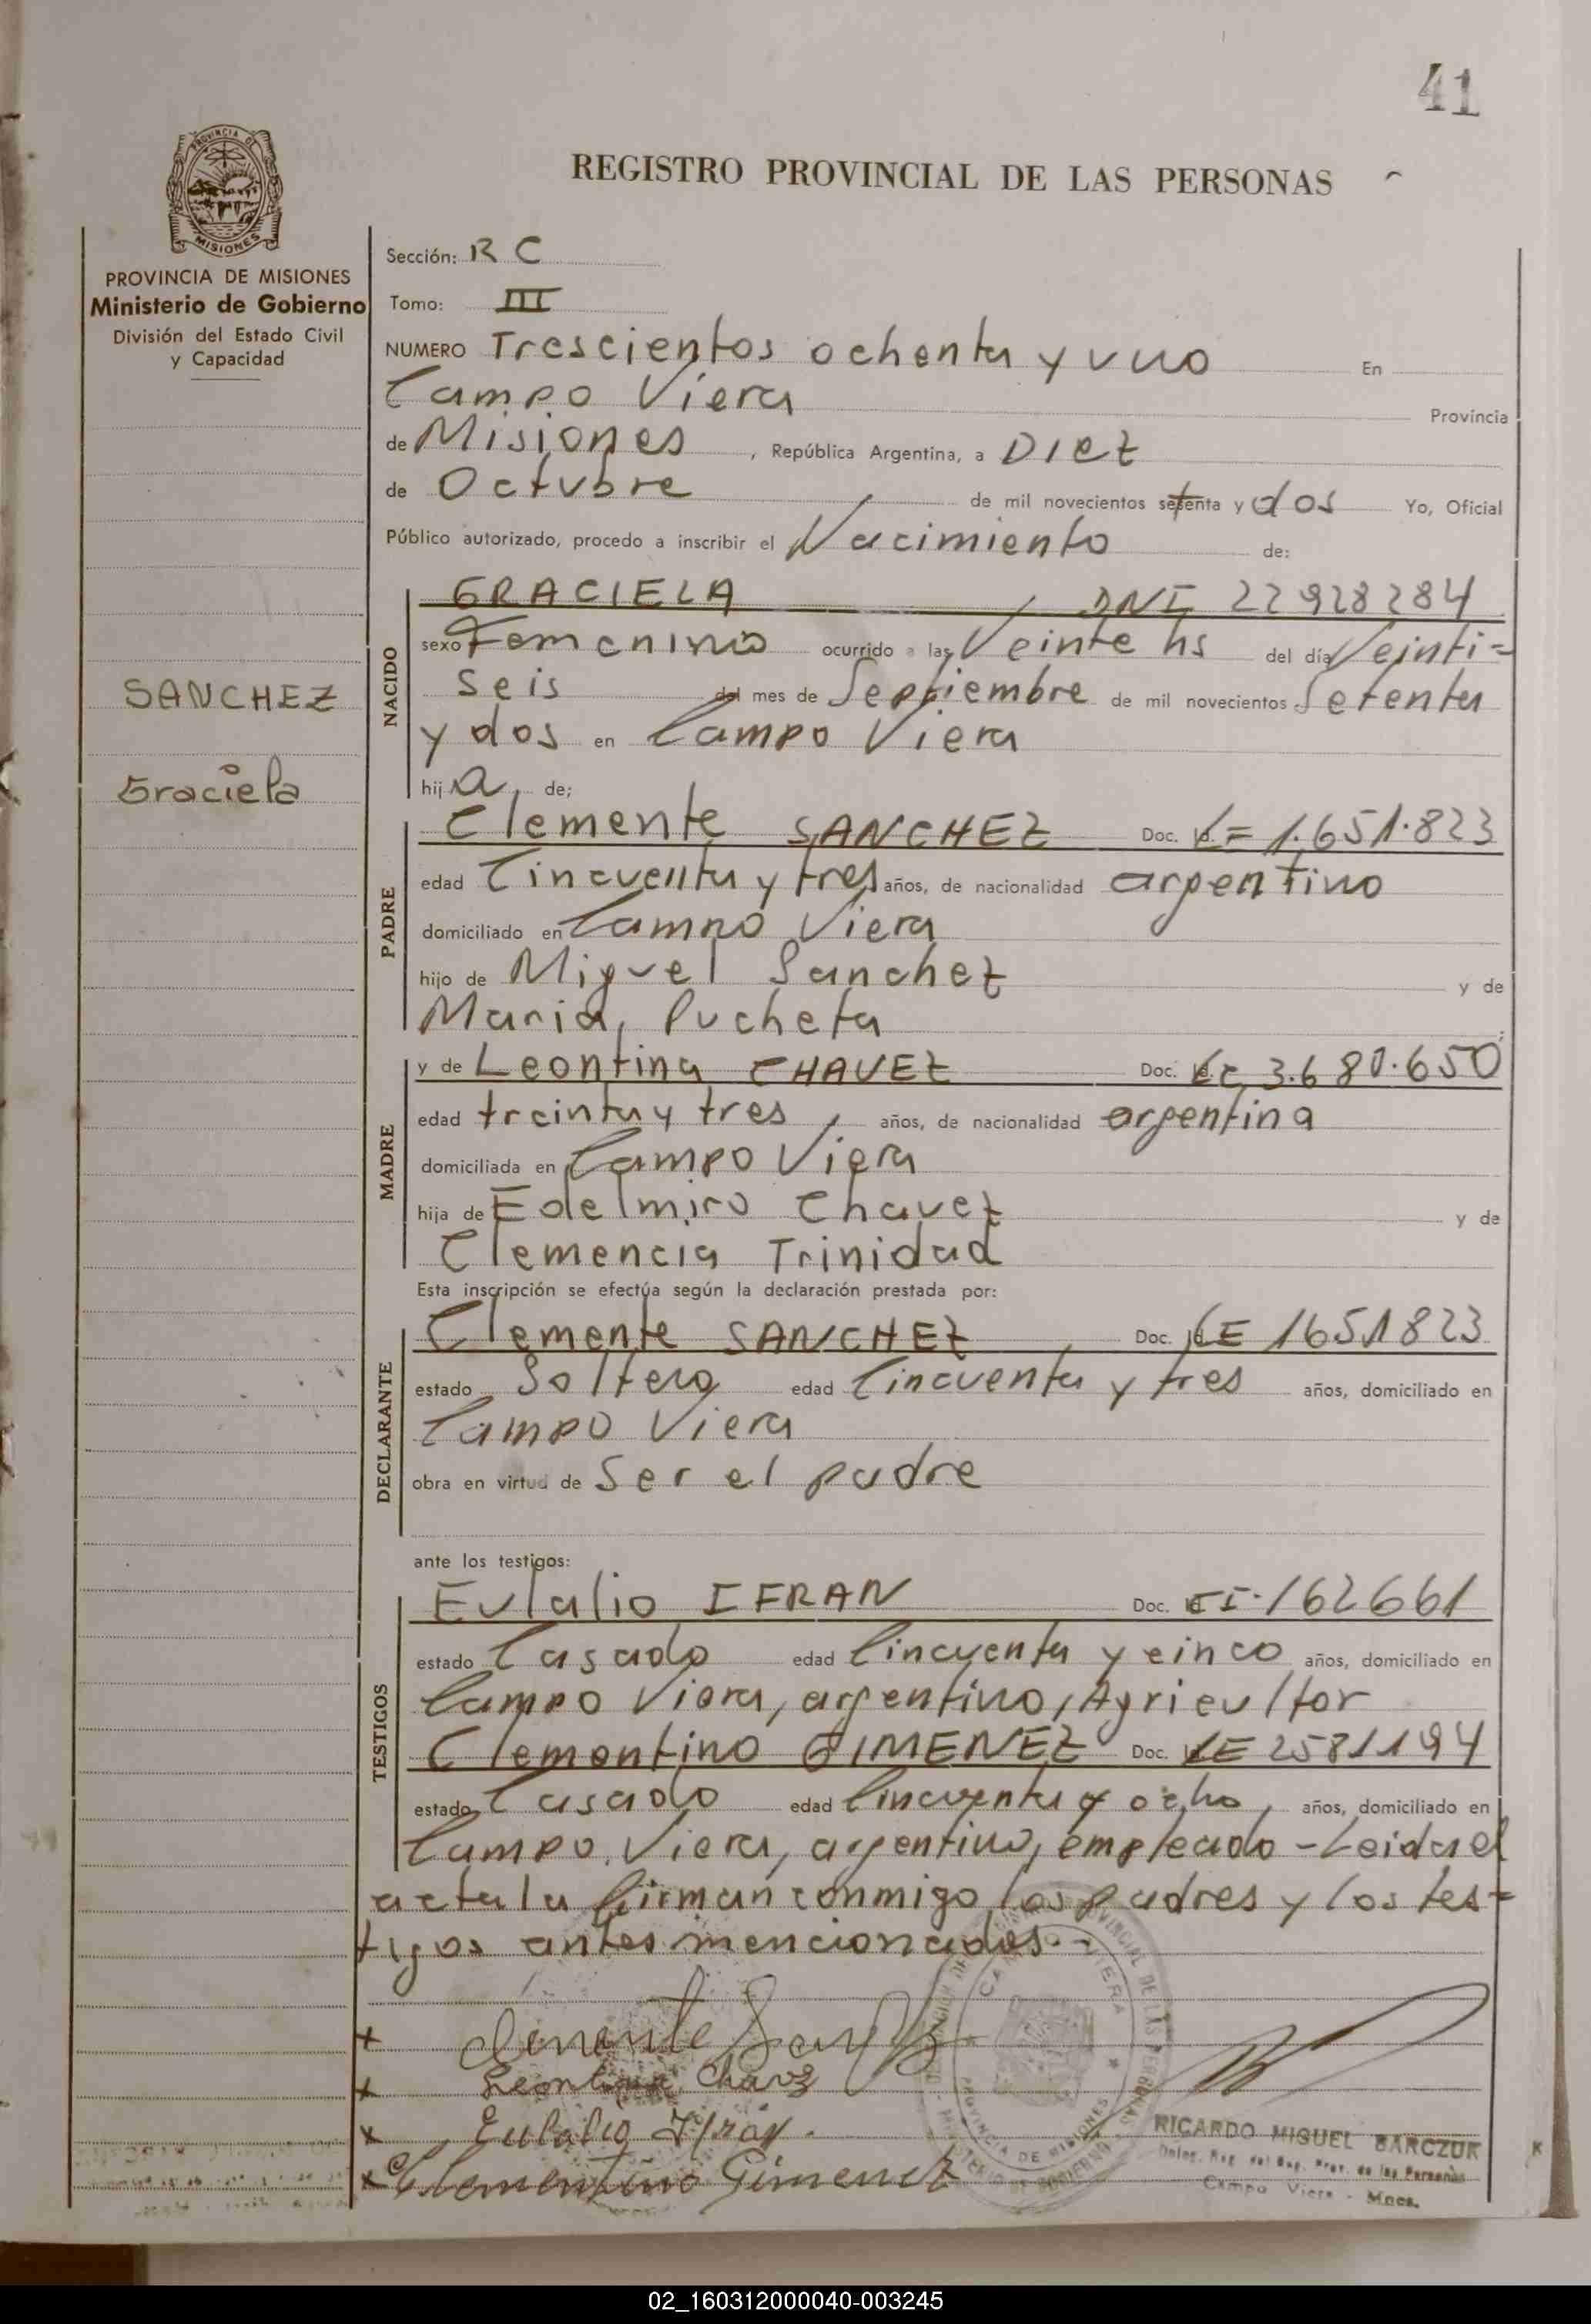 41
REGISTRO PROVINCIAL DE LAS PERSONAS
PROVINCIA DE
MISIONES
PROVINCIA DE MISIONES
Ministerio de Gobierno
División del Estado Civil
y Capacidad
SANCHEZ
Graciela
Sección: R C
Tomo: III
NUMERO Trescientos ochenta y uno En
Campo Viera Provincia
de Misiones, República Argentina, a Diez
de Octubre de mil novecientos setenta y dos Yo, Oficial
Público autorizado, procedo a inscribir el Nacimiento de:
NACIDO
GRACIELA, DNI 22928284
sexo Femenino ocurrido a las Veinte hs del día Veinti=
seis del mes de Septiembre de mil novecientos Setenta
y dos en Campo Viera
hija, de;
PADRE
Clemente SANCHEZ Doc. LE 1.651.823
edad Cincuenta y tres años, de nacionalidad argentino
domiciliado en Campo Viera
hijo de Miguel Sanchez y de
Maria Pucheta
MADRE
y de Leontina CHAVEZ Doc. LC 3.680.650
edad treinta y tres, años, de nacionalidad argentina
domiciliada en Campo Viera
hija de Edelmiro Chavez y de
Clemencia Trinidad
Esta inscripción se efectúa según la declaración prestada por:
DECLARANTE
Clemente SANCHEZ, Doc. LE 1651823
estado Soltero edad Cincuenta y tres años, domiciliado en
Campo Viera
obra en virtud de Ser el padre
ante los testigos:
TESTIGOS
Eulalio IFRAN Doc. CI. 162661
estado Casado edad Cincuenta y cinco años, domiciliado en
Campo Viera, argentino, Agricultor
Clementino GIMENEZ Doc. LE 2581194
estado Casado edad Cincuenta y ocho, años, domiciliado en
Campo Viera, argentino, empleado - Leida el
acta la firman conmigo los padres y los tes=
tigos antes mencionados.-
x Clemente Sanchez
x Leontina Chavez
x Eulalio Ifrán.
x Clementino Gimenez
PROVINCIA DE MISIONES
RICARDO MIGUEL BARCZUK
Deleg. Reg. del Reg. Prov. de las Personas
Campo Viera - Mnes.
02_160312000040-003245